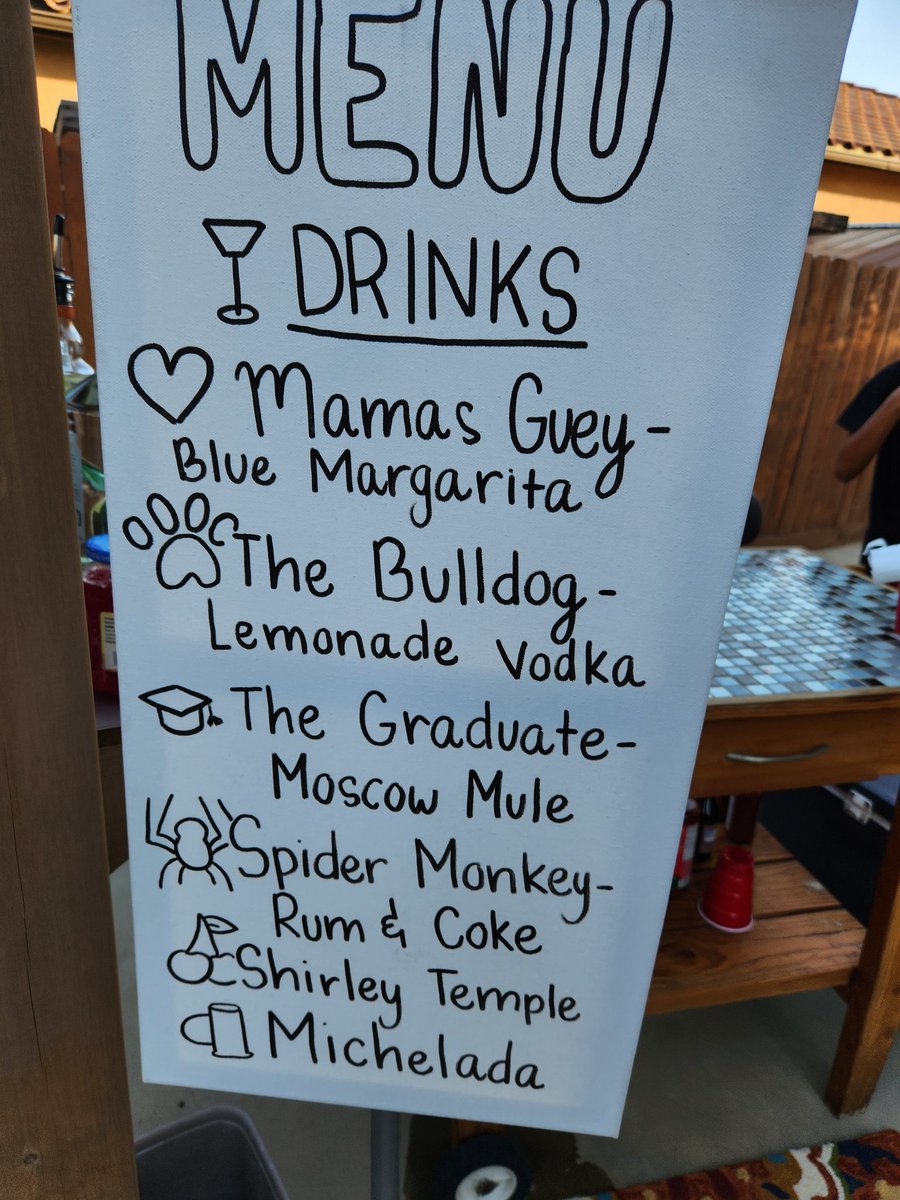 MENU
DRINKS
Mamas Guey-
Blue Margarita
The Bulldog-
Lemonade Vodka
The Graduate-
Moscow Mule
Spider Monkey-
Rum & Coke
Shirley Temple
Michelada